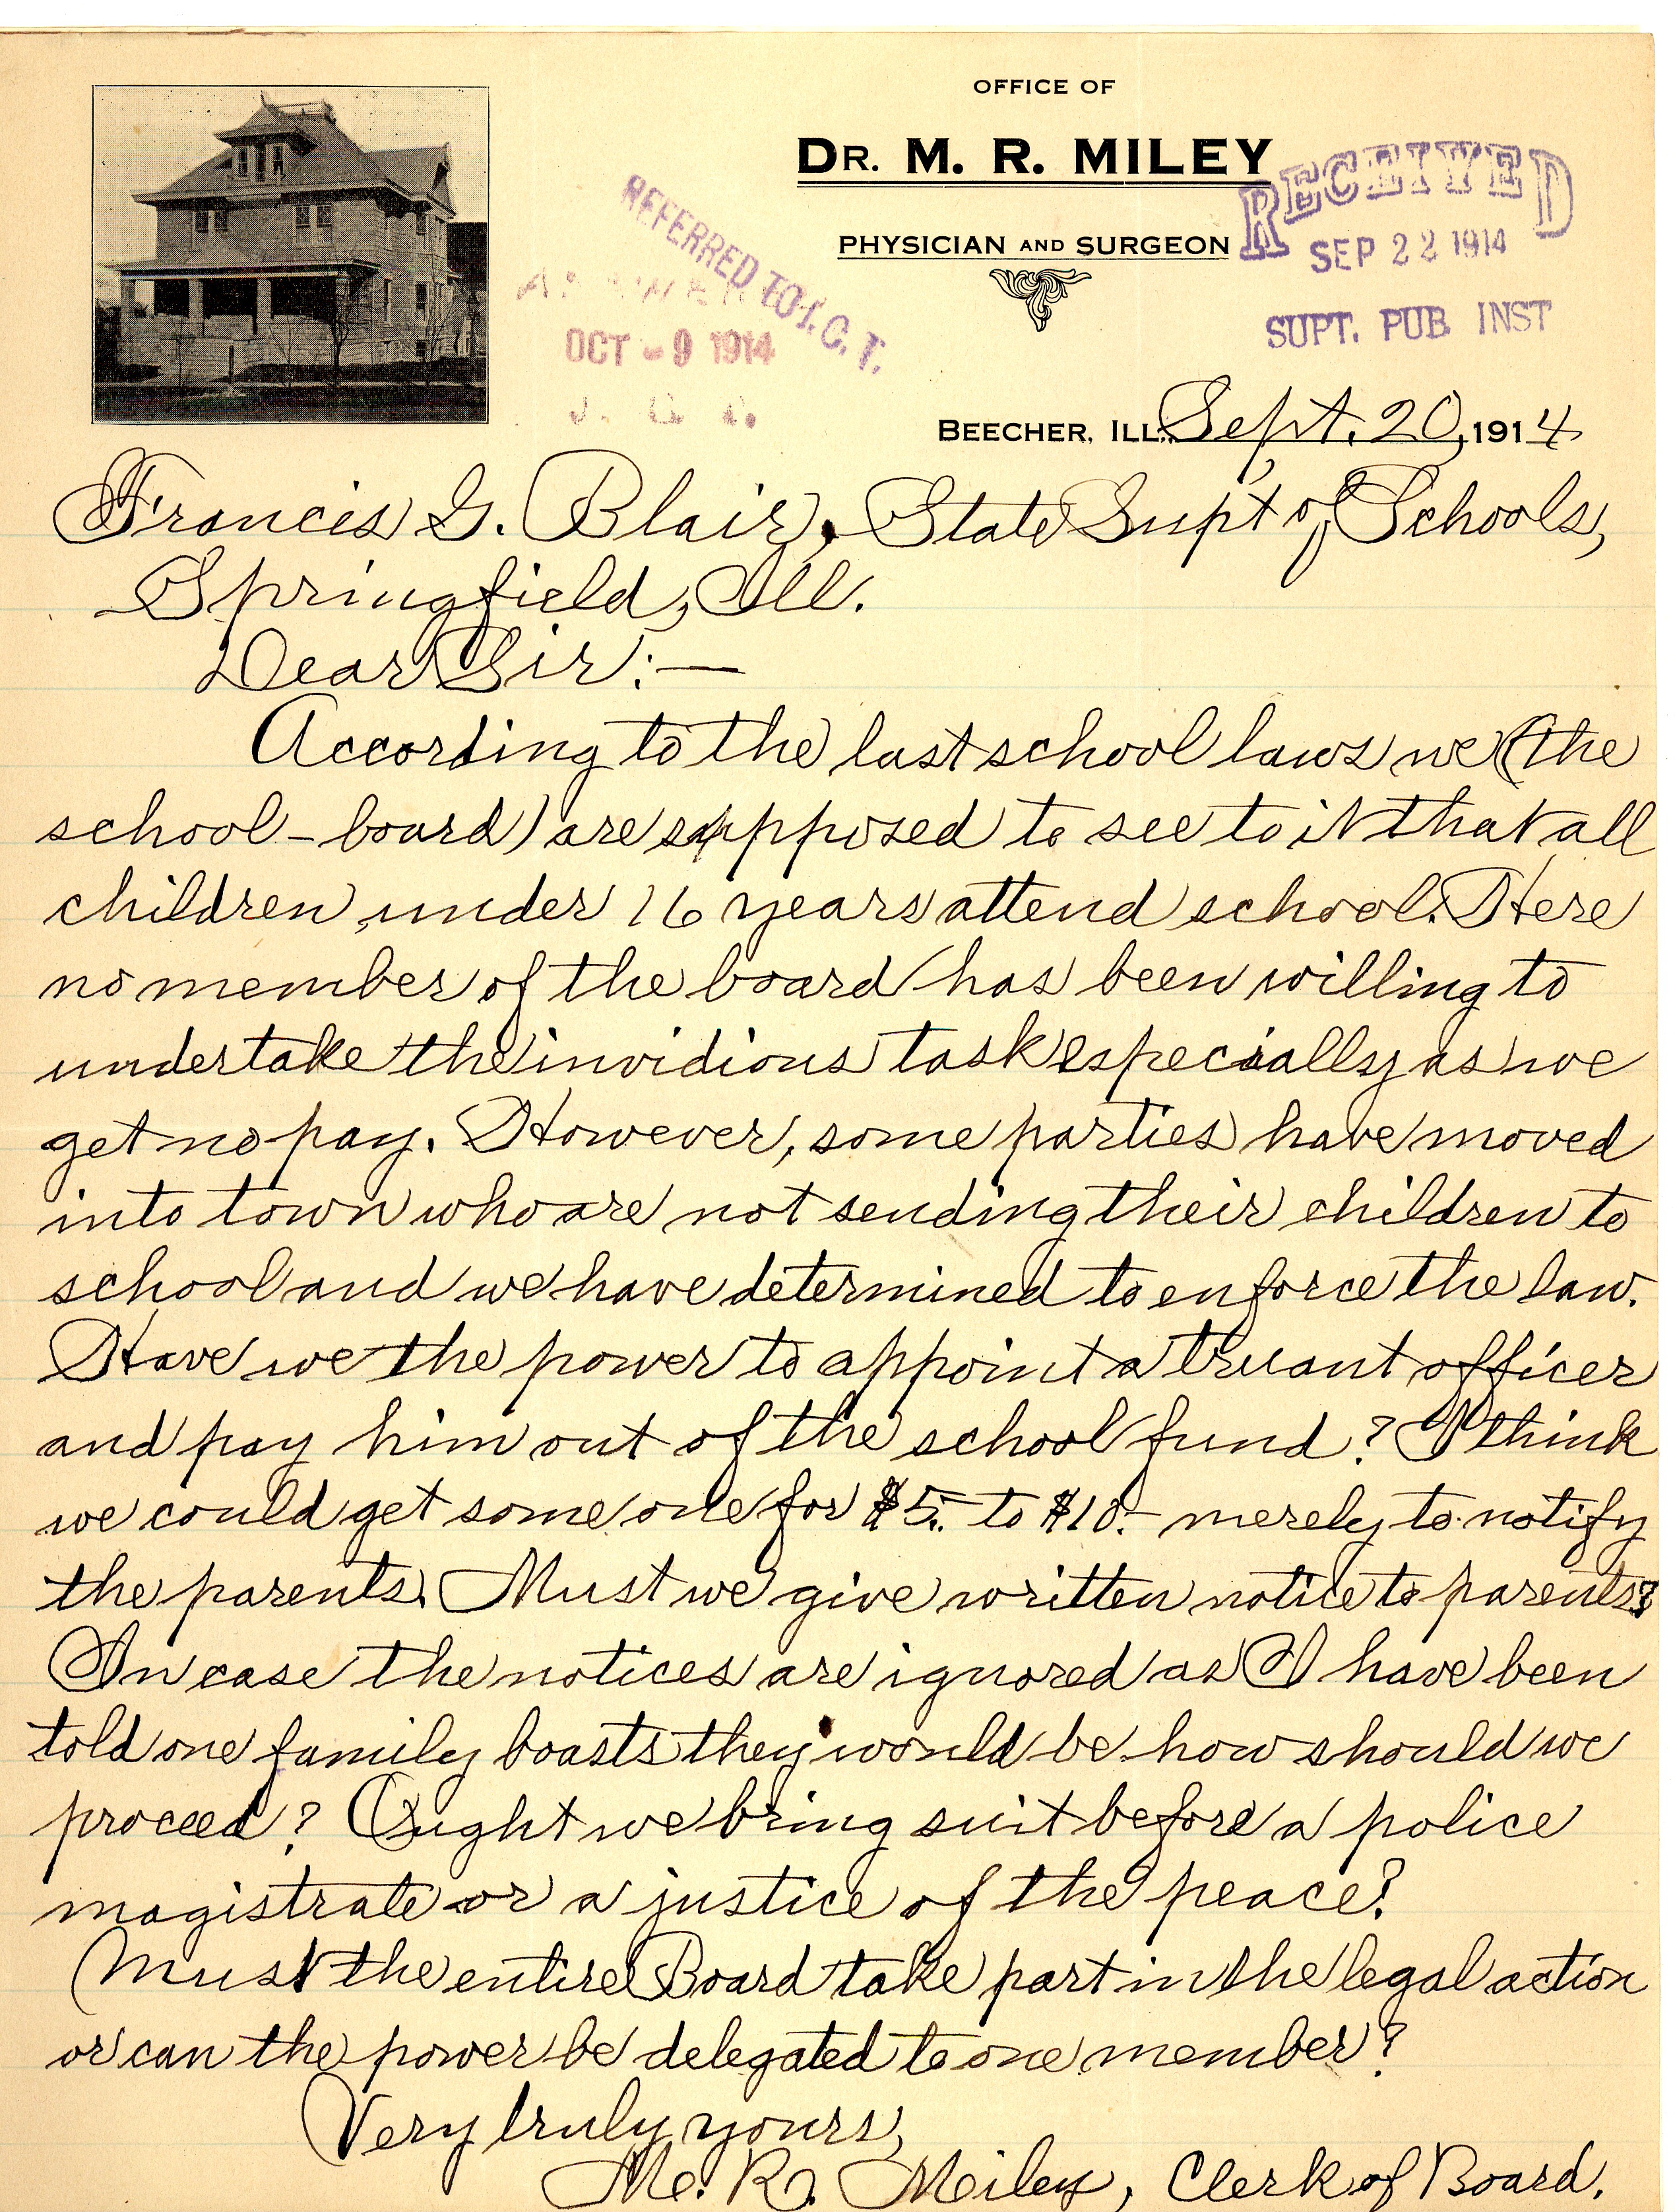 OFFICE OF
DR. M. R. MILEY
PHYSICIAN AND SURGEON
RECEIVED
SEP 22 1914
SUPT. PUB. INST
REFERRED TO J. C. T.
OCT -9 1914
BEECHER, ILL., Sept. 20, 1914
Francis G. Blair, State Supt of Schools,
Springfield, Ill.
Dear Sir:—
According to the last school laws we (the
school-board) are supposed to see to it that all
children, under 16 years attend school. Here
no member of the board has been willing to
undertake the invidious task especially as we
get no pay. However, some parties have moved
into town who are not sending their children to
school and we have determined to enforce the law.
Have we the power to appoint a truant officer
and pay him out of the school fund? I think
we could get some one for $5.- to $10.- merely to notify
the parents. Must we give written notice to parents?
In case the notices are ignored as I have been
told one family boasts they would be how should we
proceed? Ought we bring suit before a police
magistrate or a justice of the peace?
Must the entire Board take part in the legal action
or can the power be delegated to one member?
Very truly yours,
M. R. Miley, Clerk of Board.